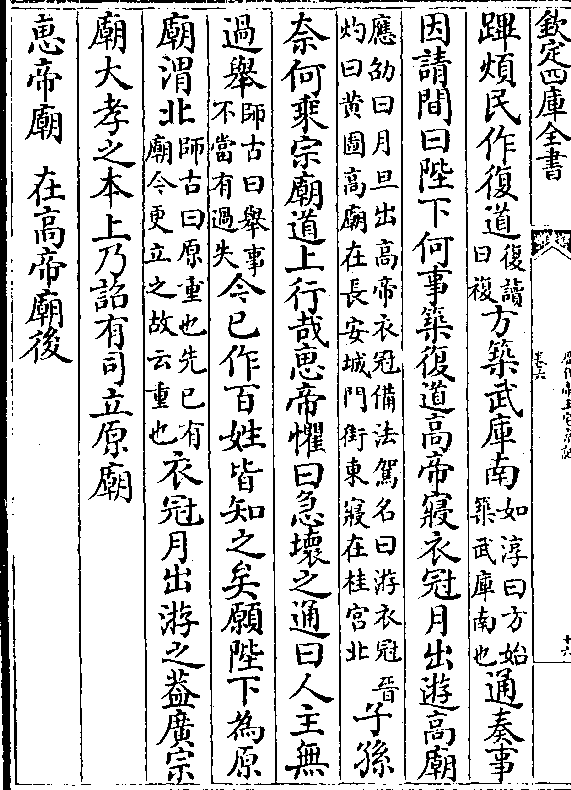 欽定四庫全書
卷六
十六
蹕煩民作復道復讀曰複方築武庫南如淳曰方始築武庫南也通奏事
因請間曰陛下何事築復道高帝寢衣冠月出遊高廟
應劭曰月旦出高帝衣冠備法駕名曰游衣冠晉灼曰黃圖高廟在長安城門街東寢在桂宮北子孫
奈何乗宗廟道上行哉恵帝懼曰急壊之通曰人主無
過舉師古曰舉事不當有過失今已作百姓皆知之矣願陛下為原
廟渭北師古曰原重也先已有廟今更立之故云重也衣冠月出游之益廣宗
廟大孝之本上乃詔有司立原廟
恵帝廟 在高帝廟後